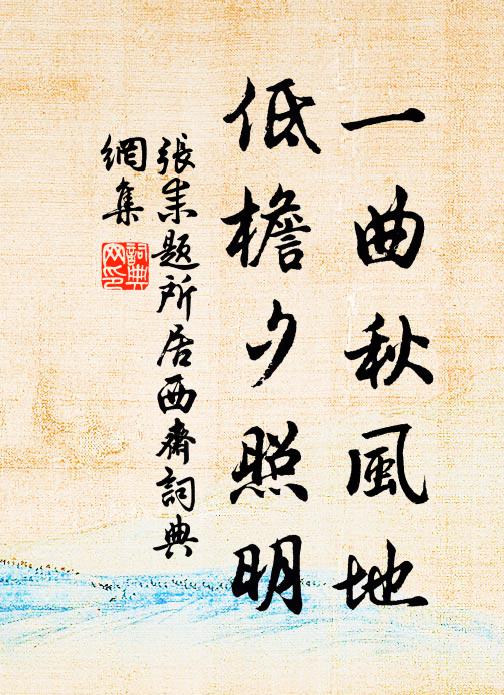 一曲秋風地
低檐夕照明
張耒題所居西齋詞典
網集
詞典
网印